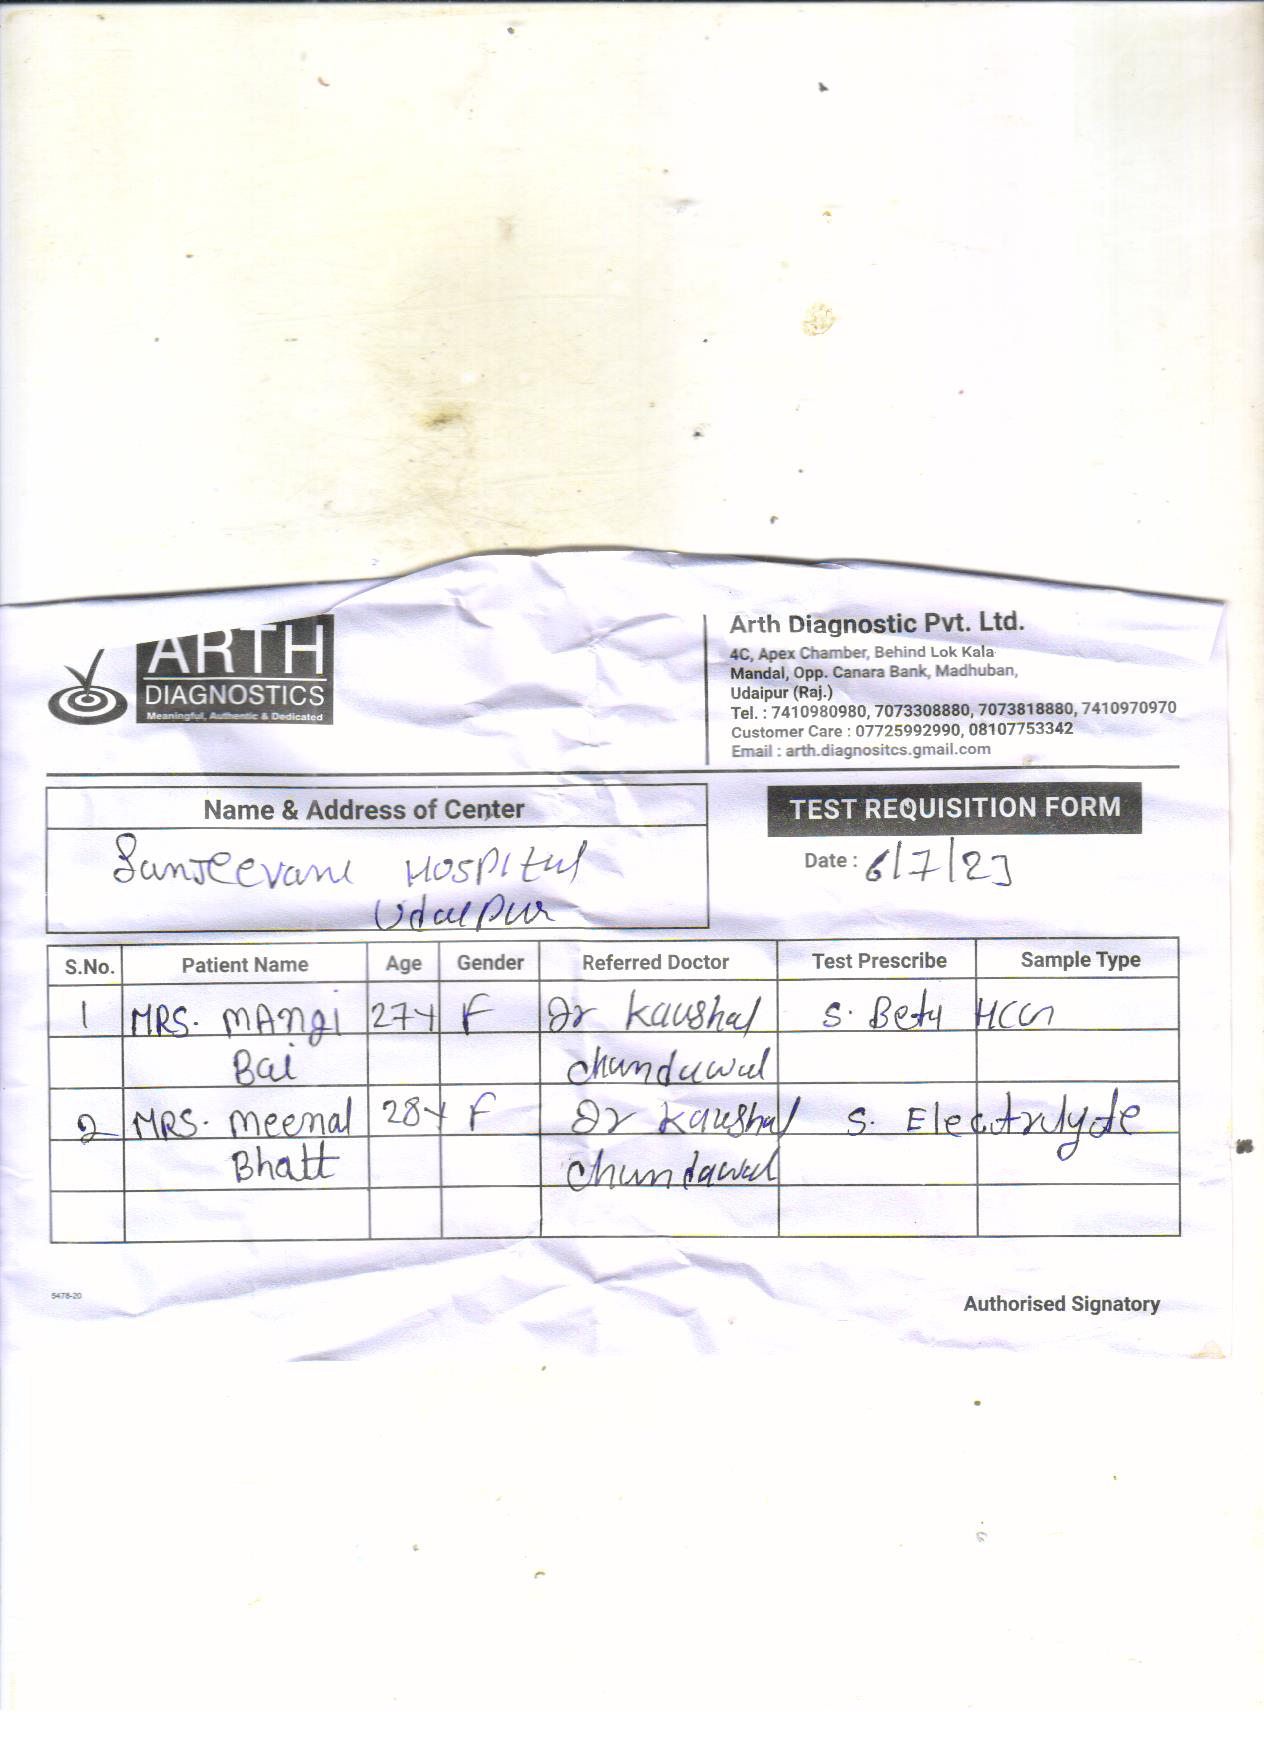 ARTH
DIAGNOSTICS
Meaningful, Authentic & Dedicated
Arth Diagnostic Pvt. Ltd.
4C, Apex Chamber, Behind Lok Kala
Mandal, Opp. Canara Bank, Madhuban,
Udaipur (Raj.)
Tel. : 7410980980, 7073308880, 7073818880, 7410970970
Customer Care : 07725992990, 08107753342
Email : arth.diagnositcs.gmail.com
Name & Address of Center
TEST REQUISITION FORM
Sanjeevani Hospital
Udaipur
Date : 6/7/23
S.No. Patient Name Age Gender Referred Doctor Test Prescribe Sample Type
1 MRS. MAngi 27y F Dr Kaushal S. Beta HCG
Bai Chundawal
2 MRS. Meenal 28y F Dr Kaushal S. Electrolyte
Bhatt Chundawal
5478-20
Authorised Signatory